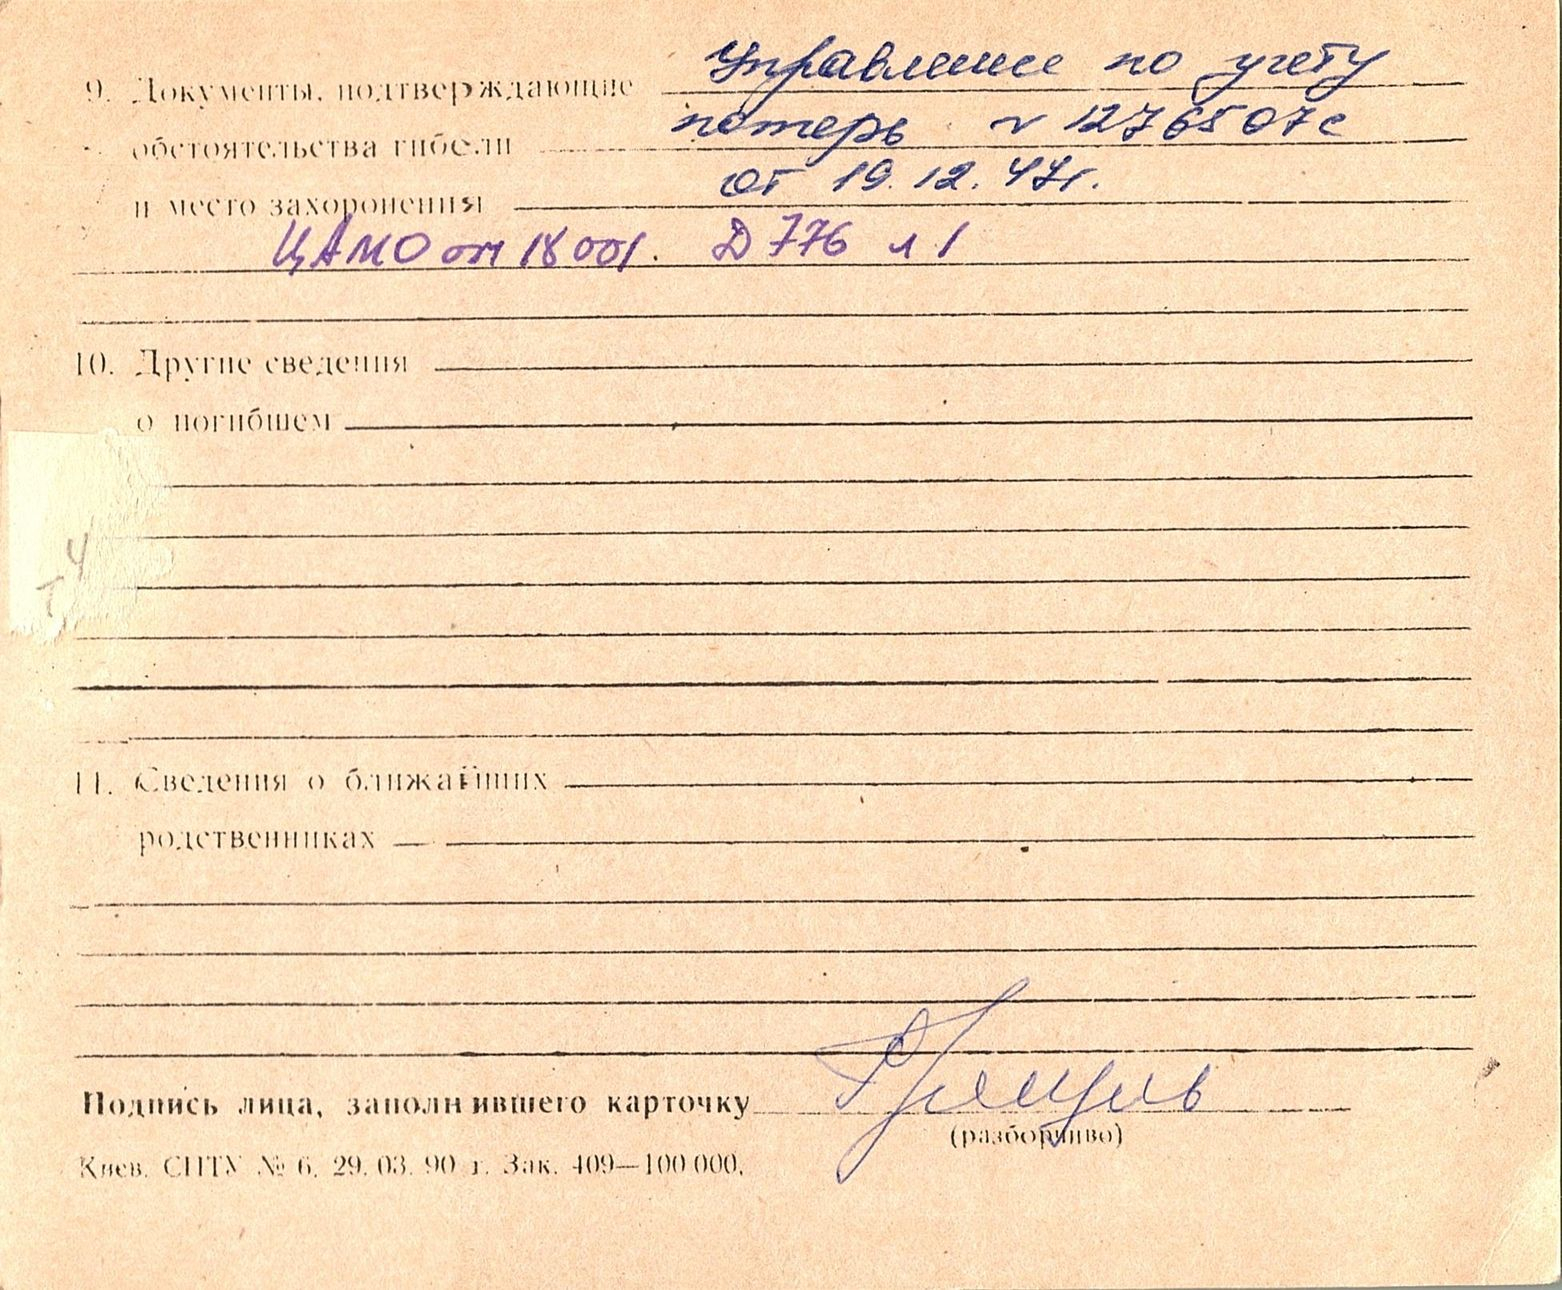 Управление по учету
9. Документы, подтверждающие
потерь № 1276507с
обстоятельства гибели
от 19.12.47г.
и место захоронения
ЦАМО оп 18001. Д 776 л 1
10. Другие сведения
о погибшем
ч
т
11. Сведения о ближайших
родственниках
Подпись лица, заполнившего карточку
(разборчиво)
Киев. СПТУ № 6. 29. 03. 90 г. Зак. 409—100 000.